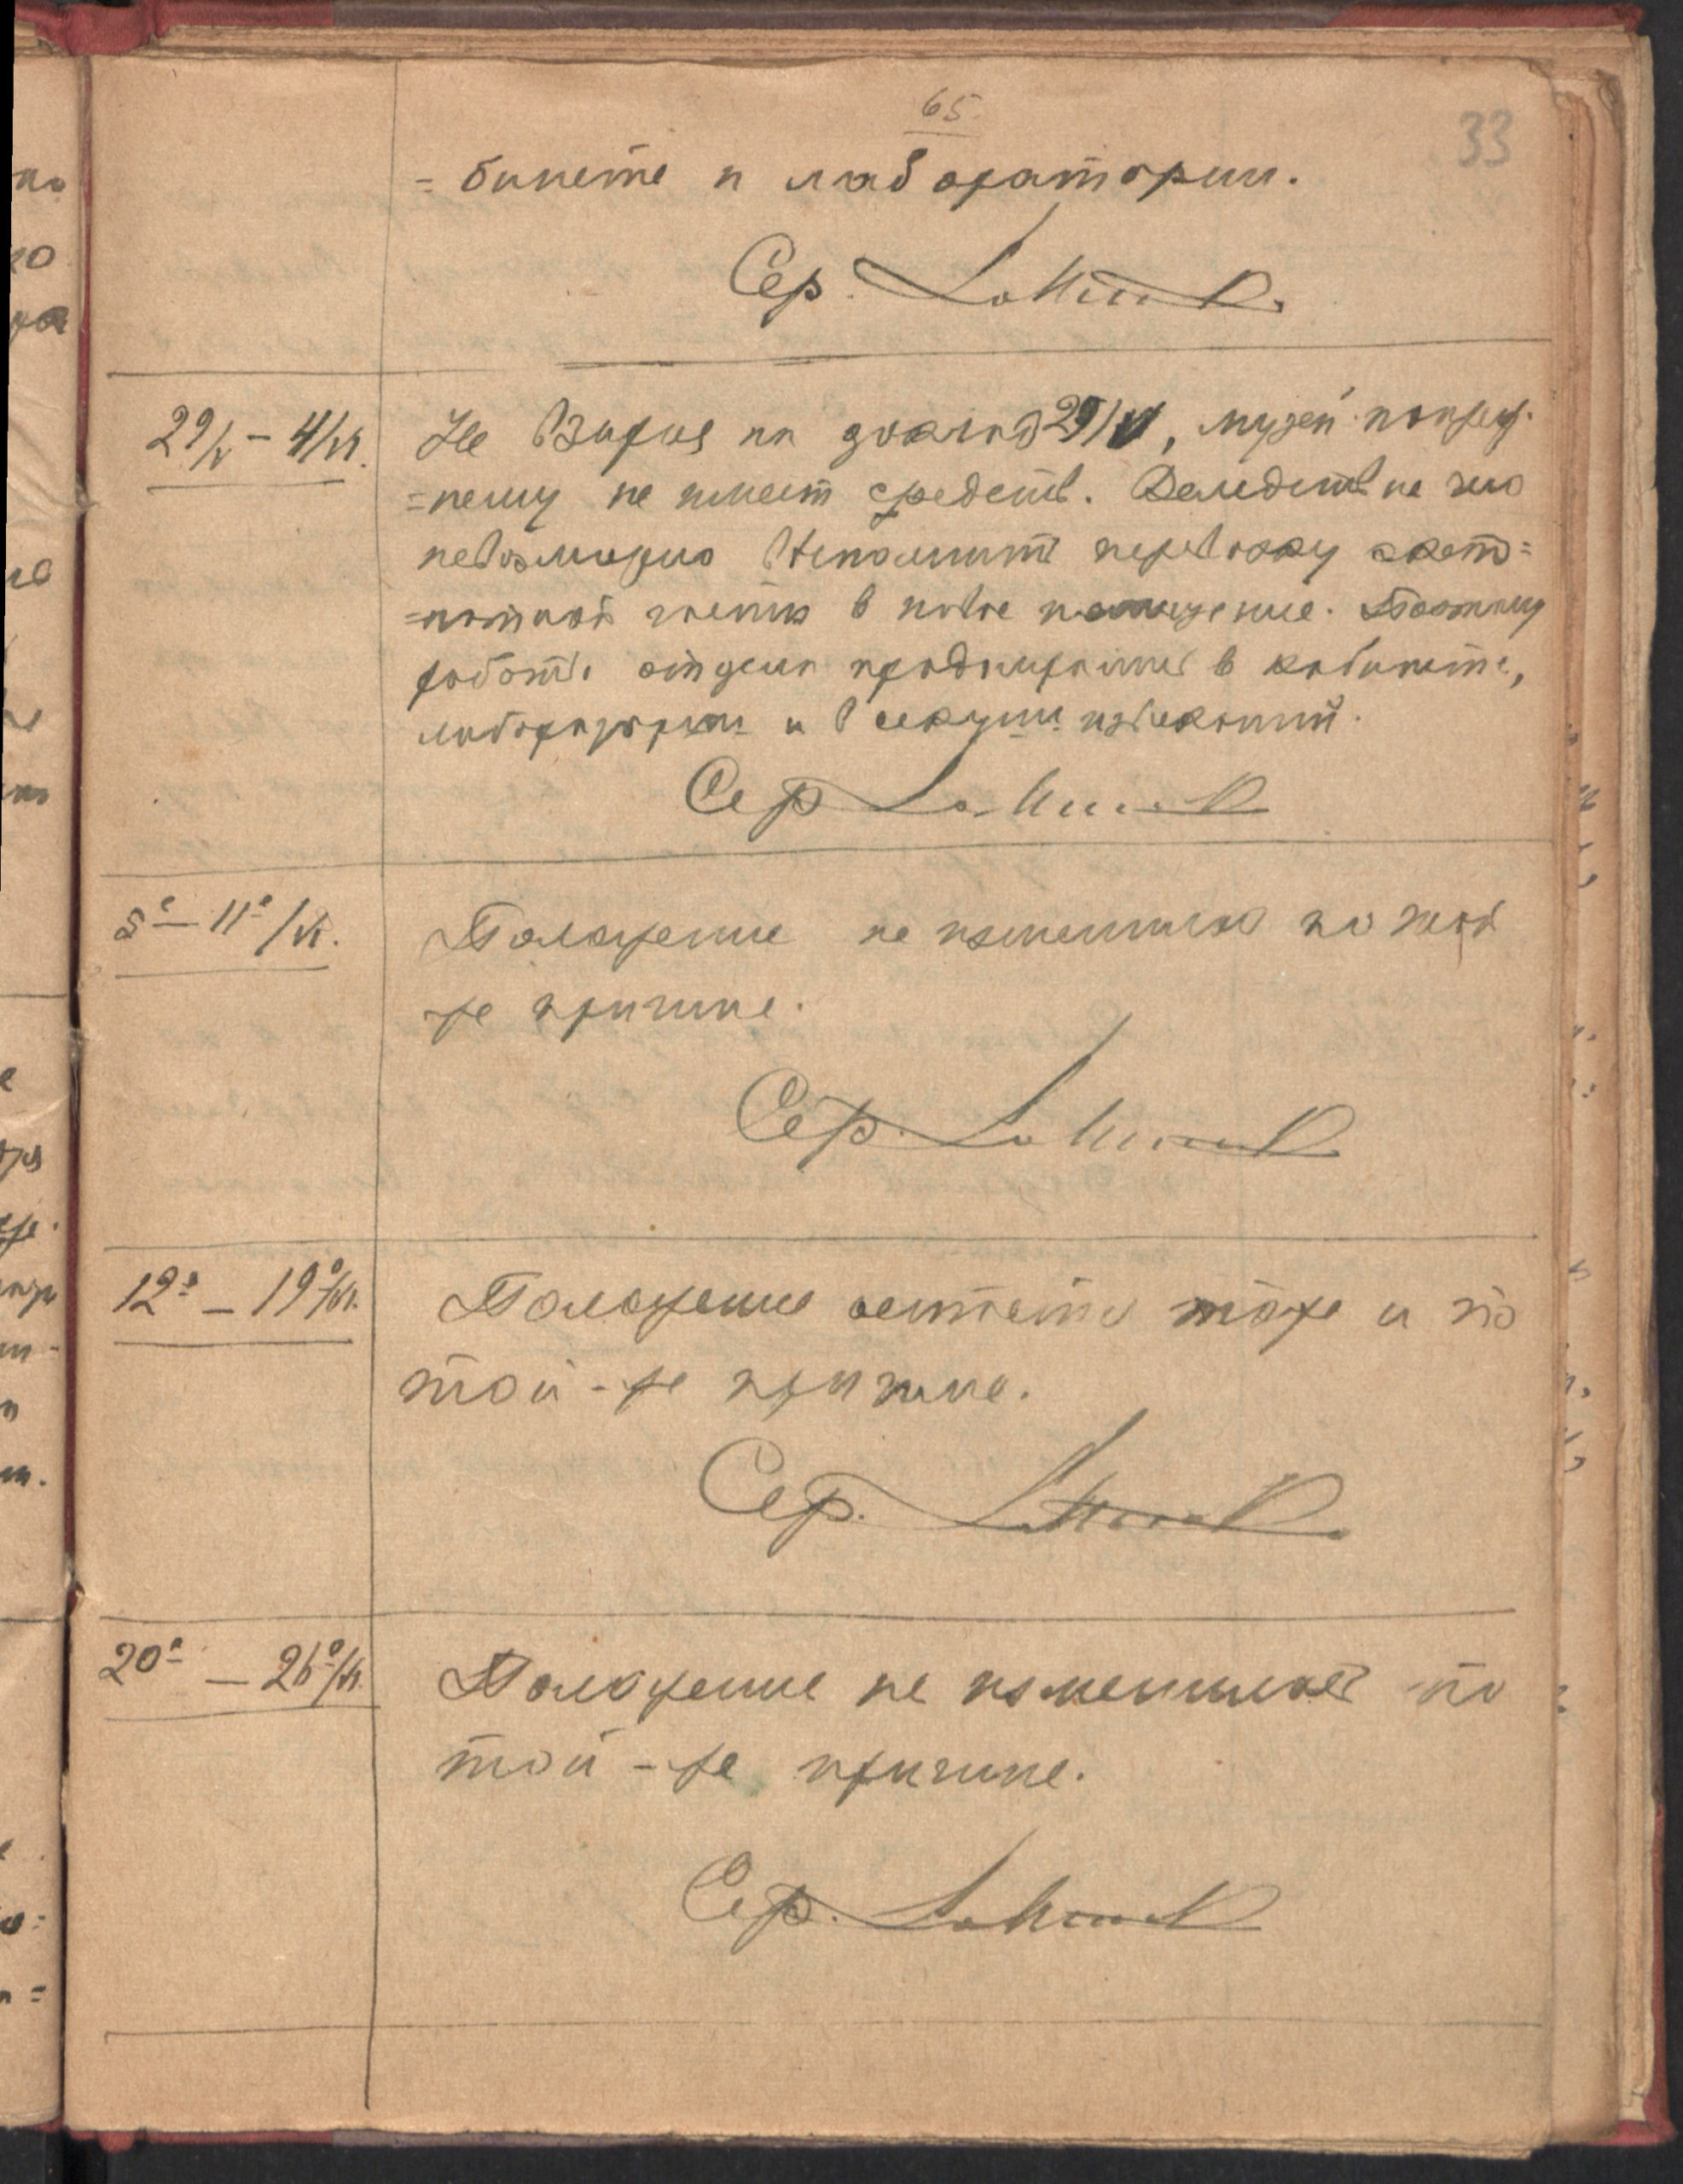 65
33
= бинете и лаборатории.
Сер.
29/V – 4/VI.
Не взирая на доклад 29/V, музей попреж-
=нему не имеет средств. Вследствие чего
невозможно выполнить перевозку
части в новое помещение. Поэтому
работы отдела продолжались в кабинете,
лаборатории и в секции
Сер
5º – 11º/VI.
Положение не изменилось по той
же причине.
Сер.
12º – 19º/VI.
Положение остается тоже и по
той-же причине.
Сер.
20º – 26º/VI.
Положение не изменилось по
той-же причине.
Сер.